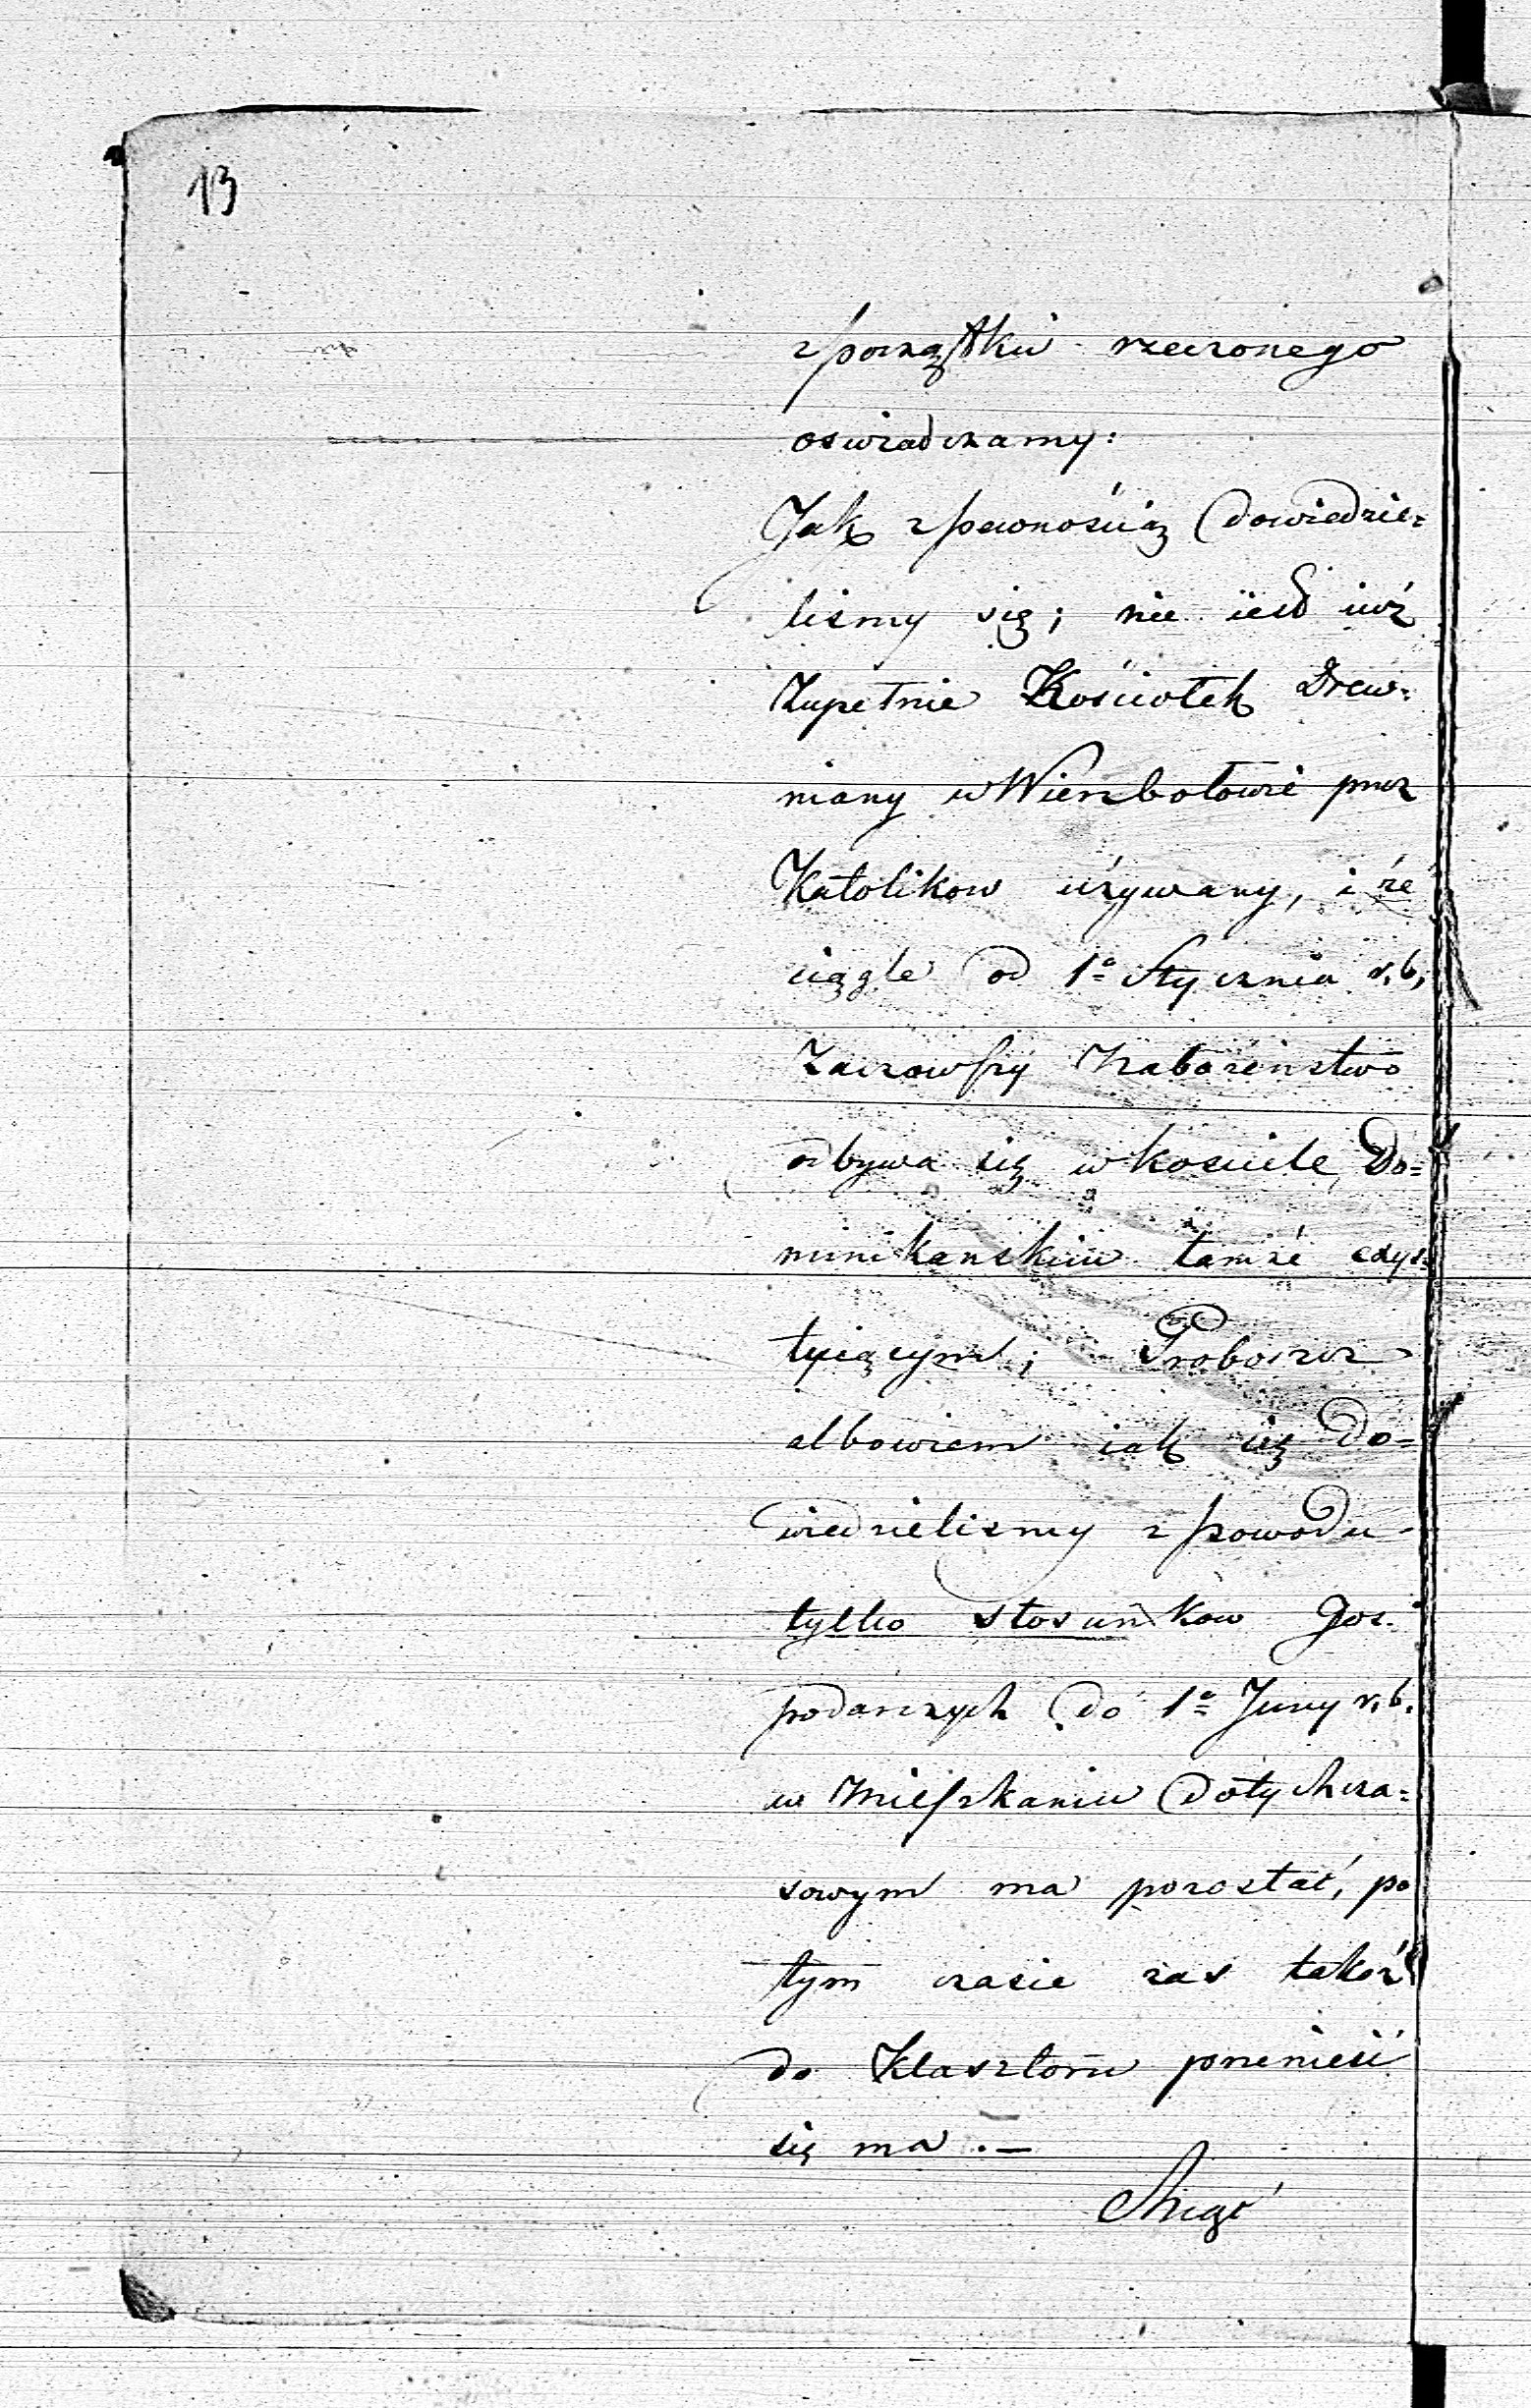 13
z początku rzeczonego
oswiadczamy:
Jak z pewnością dowiedzie=
lismy się; nie iest iuż
Zupełnie Kościołek Drew=
niany w Wierzbołowie przez
Katolikow użyuwany, i że
ciągle od 1º Stycznia r. b,
Zaczowszy Nabożeństwo
odbywa się w kosciele Do=
minikanskim tamże exys=
tyiącym; Proboszcz
albowiem iak się do=
wiedzielismy z powodu
tylko stosunkow Gos=
podarczych do 1º Juny r. b.
w Mieszkaniu dotychcza=
sowym ma pozostać, po
tym czasie zas takoż
do Klasztoru przenieść
się ma . —